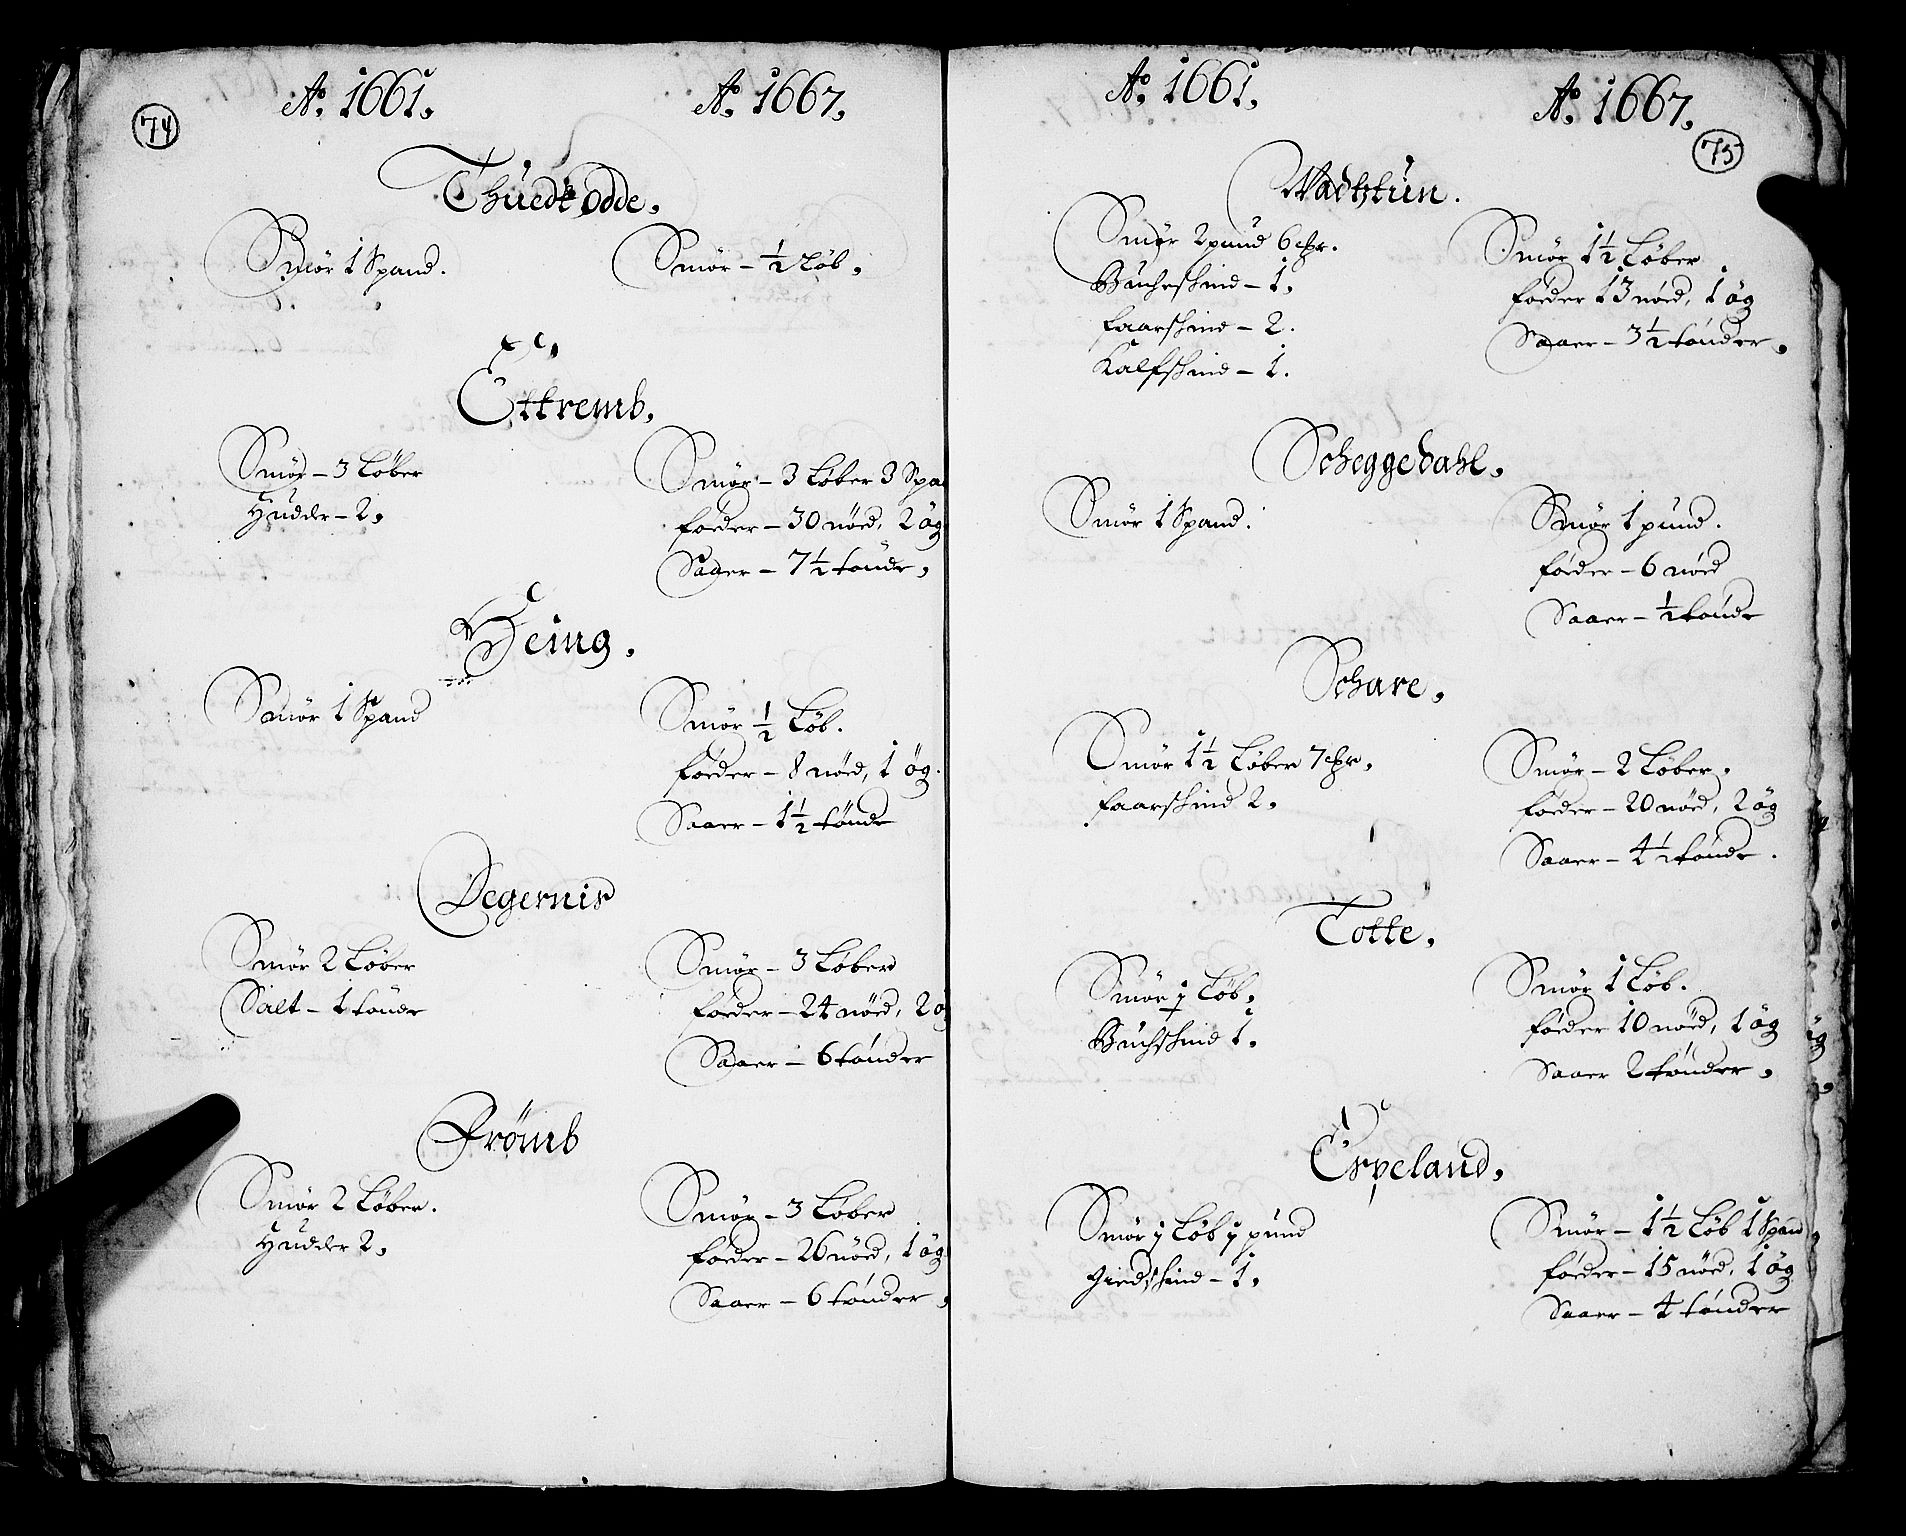 74
Ao. 1661. Ao. 1667.
Thuedt Odde.
Smør 1 Spand. Smør - ½ Løb.
Ettremb.
Smør - 3 Løber
Hudder - 2.
Smør - 3 Løber 3 Spa
foeder - 30 nöed, 2 ög
Saaer - 7½ tönde.
Heing.
Smør 1 Spand
Smør ½ Løb.
föeder - 8 nöed, 1 ög.
Saaer - 1½ tönde
Degernis
Smör 2 Løber
Salt - 1 tönde
Smør - 3 Løber
föeder - 24 nöed, 2 ög
Saaer - 6 tönder
Frömb
Smør 2 Løber.
Hudder 2.
Smør - 3 Løber
föeder - 26 nöed, 1 ög
Saaer - 6 tönder.
75
Ao. 1661. Ao. 1667.
Smør 2 pund 6
Buchschind - 1.
faarschind - 2.
Kalfschind - 1.
Smør 1½ Løber
föeder 13 nöed, 1 ög
Saaer - 3½ tönder.
Scheggedahl.
Smør 1 Spand.
Smør 1 pund.
föeder - 6 nöed
Saaer - ½ tönde
Schare.
Smør 1½ Løber 7
faarschind 2.
Smør - 2 Løber.
föeder - 20 nöed, 2 ög
Saaer - 4½ tönde.
Totte.
Smør j Løb.
Buchschind 1.
Smør 1 Løb.
föeder 10 nöed, 1 ög
Saaer 2 tönder.
Espeland.
Smør j Løb j pund
Giedschind - 1.
Smør - 1½ Løb 1 Spand.
föeder - 15 nöed, 1 ög
Saaer - 4 tönder